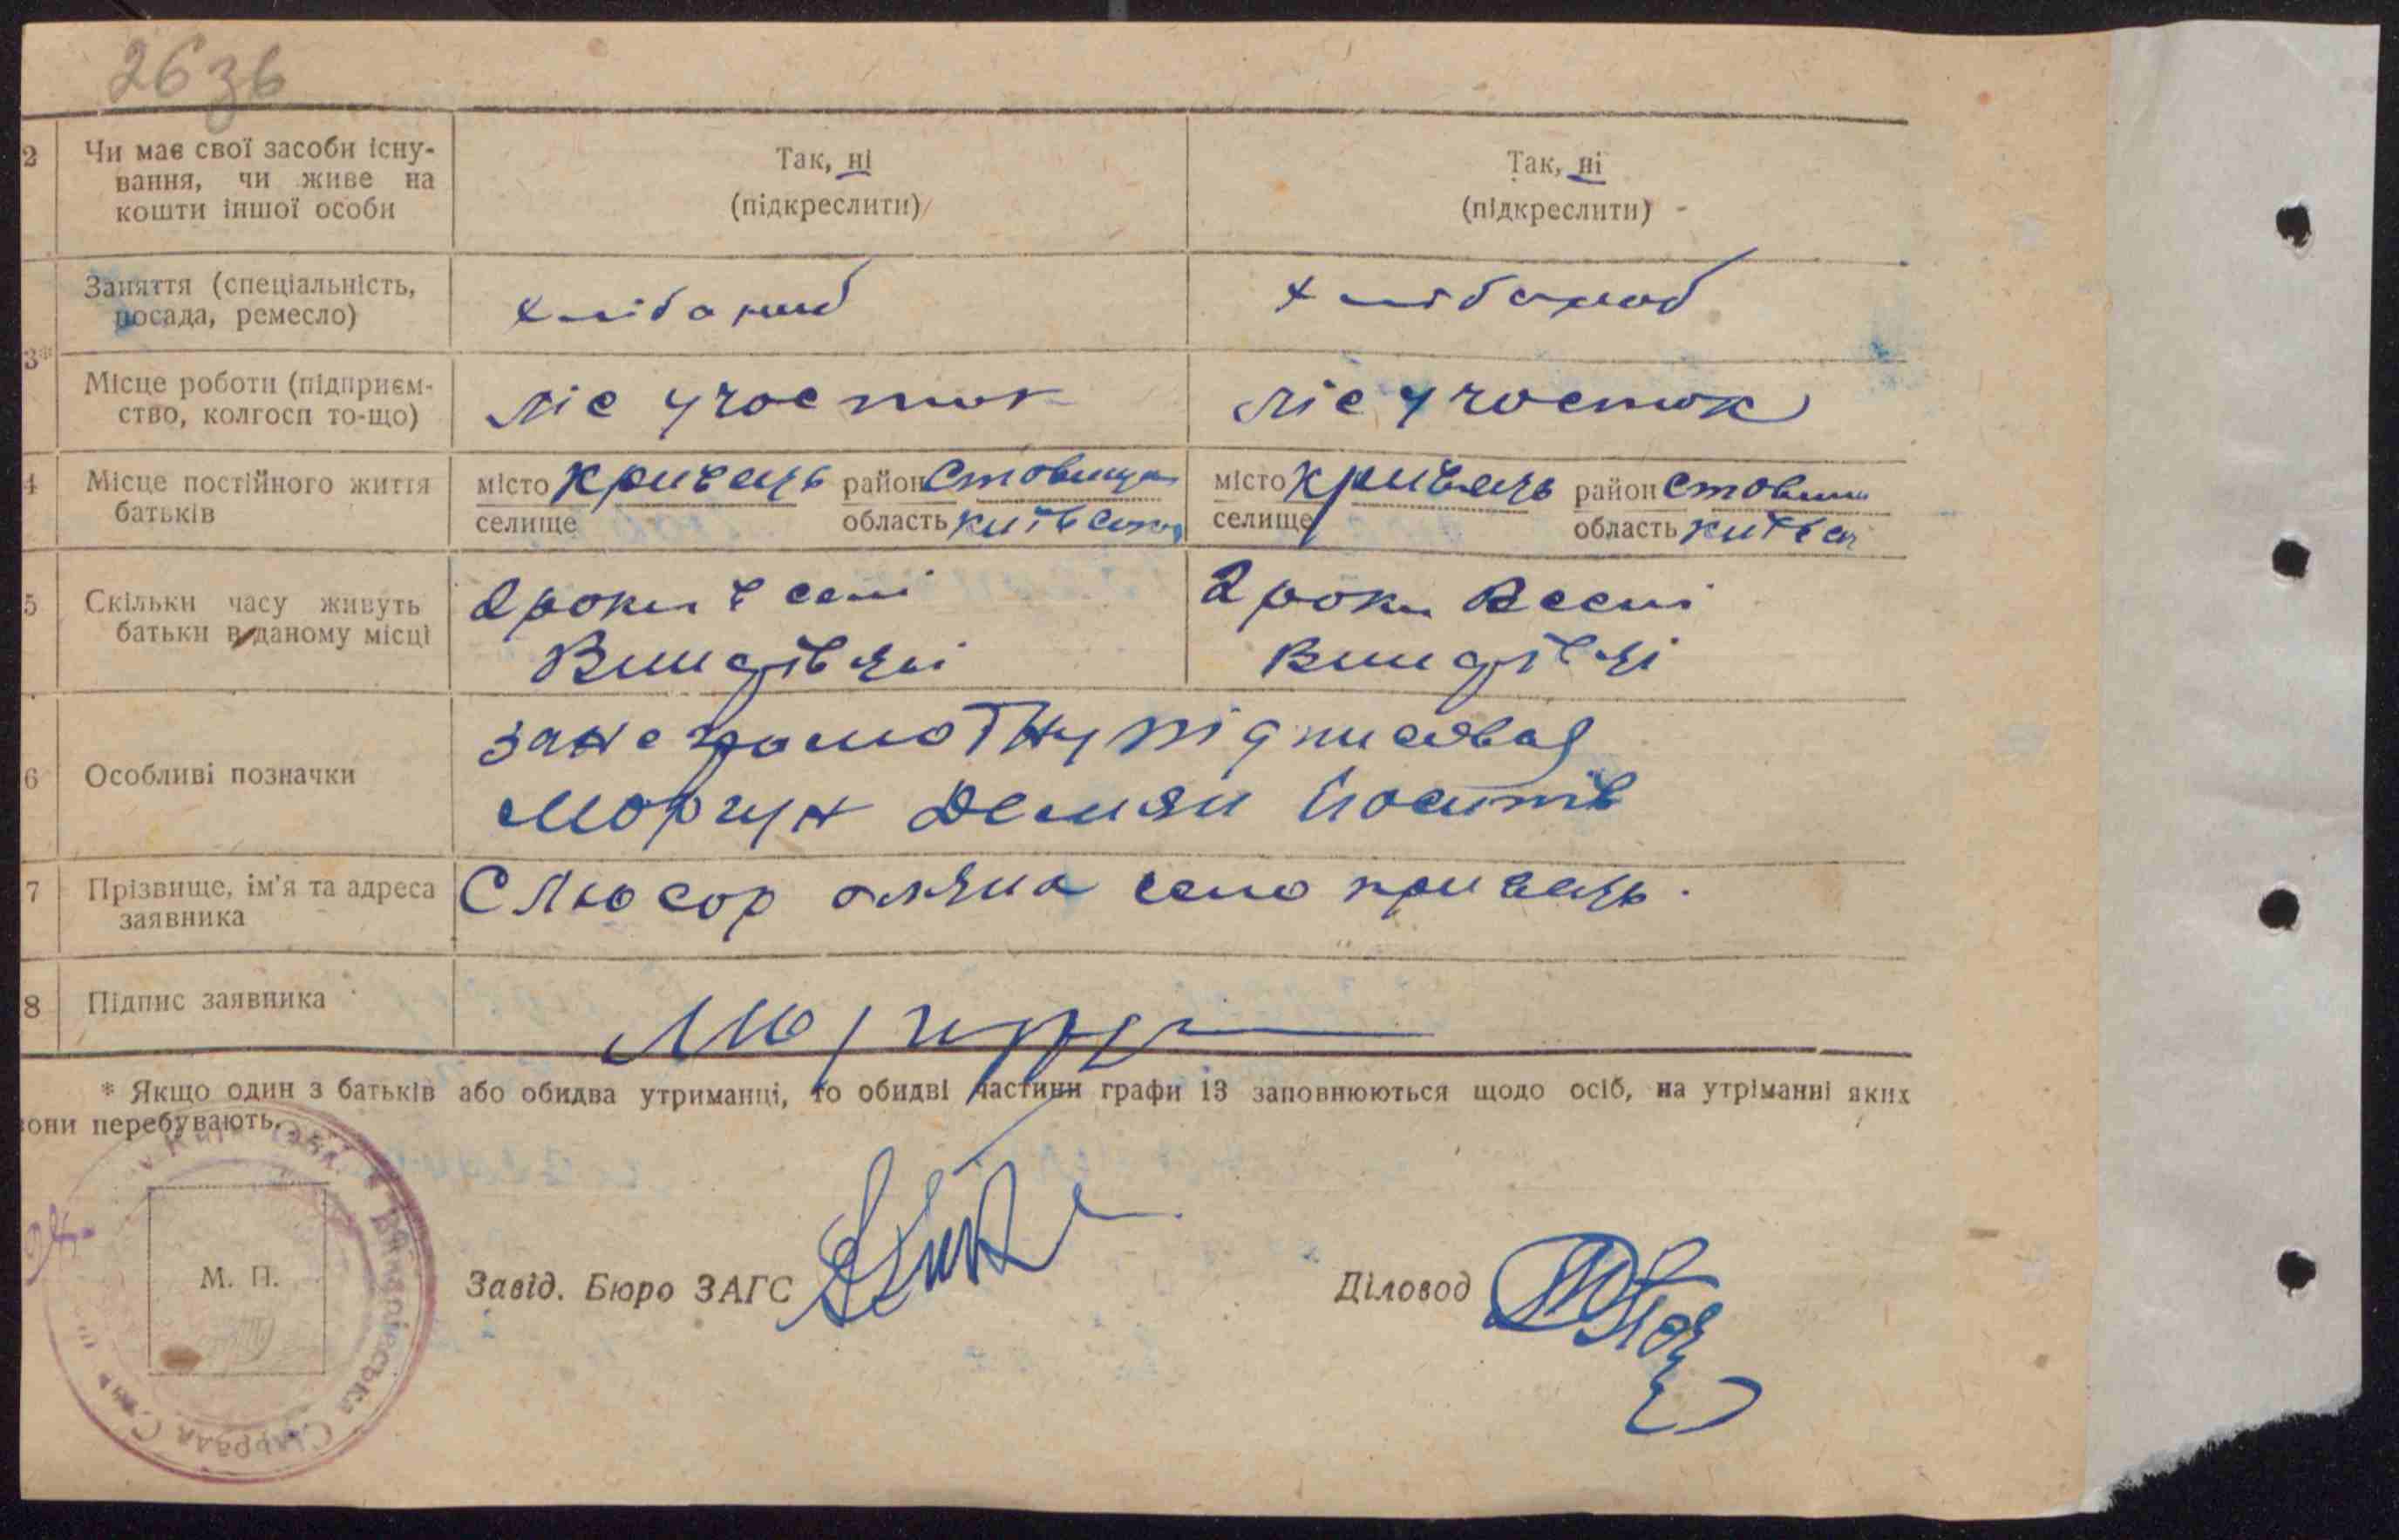 26 зв
2 Чи має свої засоби існу- Так, ні Так, ні
вання, чи живе на (підкреслити) (підкреслити)
кошти іншої особи
Заняття (спеціальність, хлібороб хлібороб
посада, ремесло)
3*
Місце роботи (підприєм- ліс участок ліс участок
ство, колгосп то-що)
4 Місце постійного життя місто Кривець район Ставищан місто Кривець район Ставищ
батьків селище область Київська селище область Київсь
5 Скільки часу живуть 2 роки в селі 2 роки в селі
батьки в даному місці
6 Особливі позначки за не грамотну підписався
Моргун Демян Йосипів
7 Прізвище, ім'я та адреса Слюсор село кривець.
заявника
8 Підпис заявника
* Якщо один з батьків або обидва утриманці, то обидві частини графи 13 заповнюються щодо осіб, на утріманні яких
вони перебувають.
М. П. Завід. Бюро ЗАГС Діловод